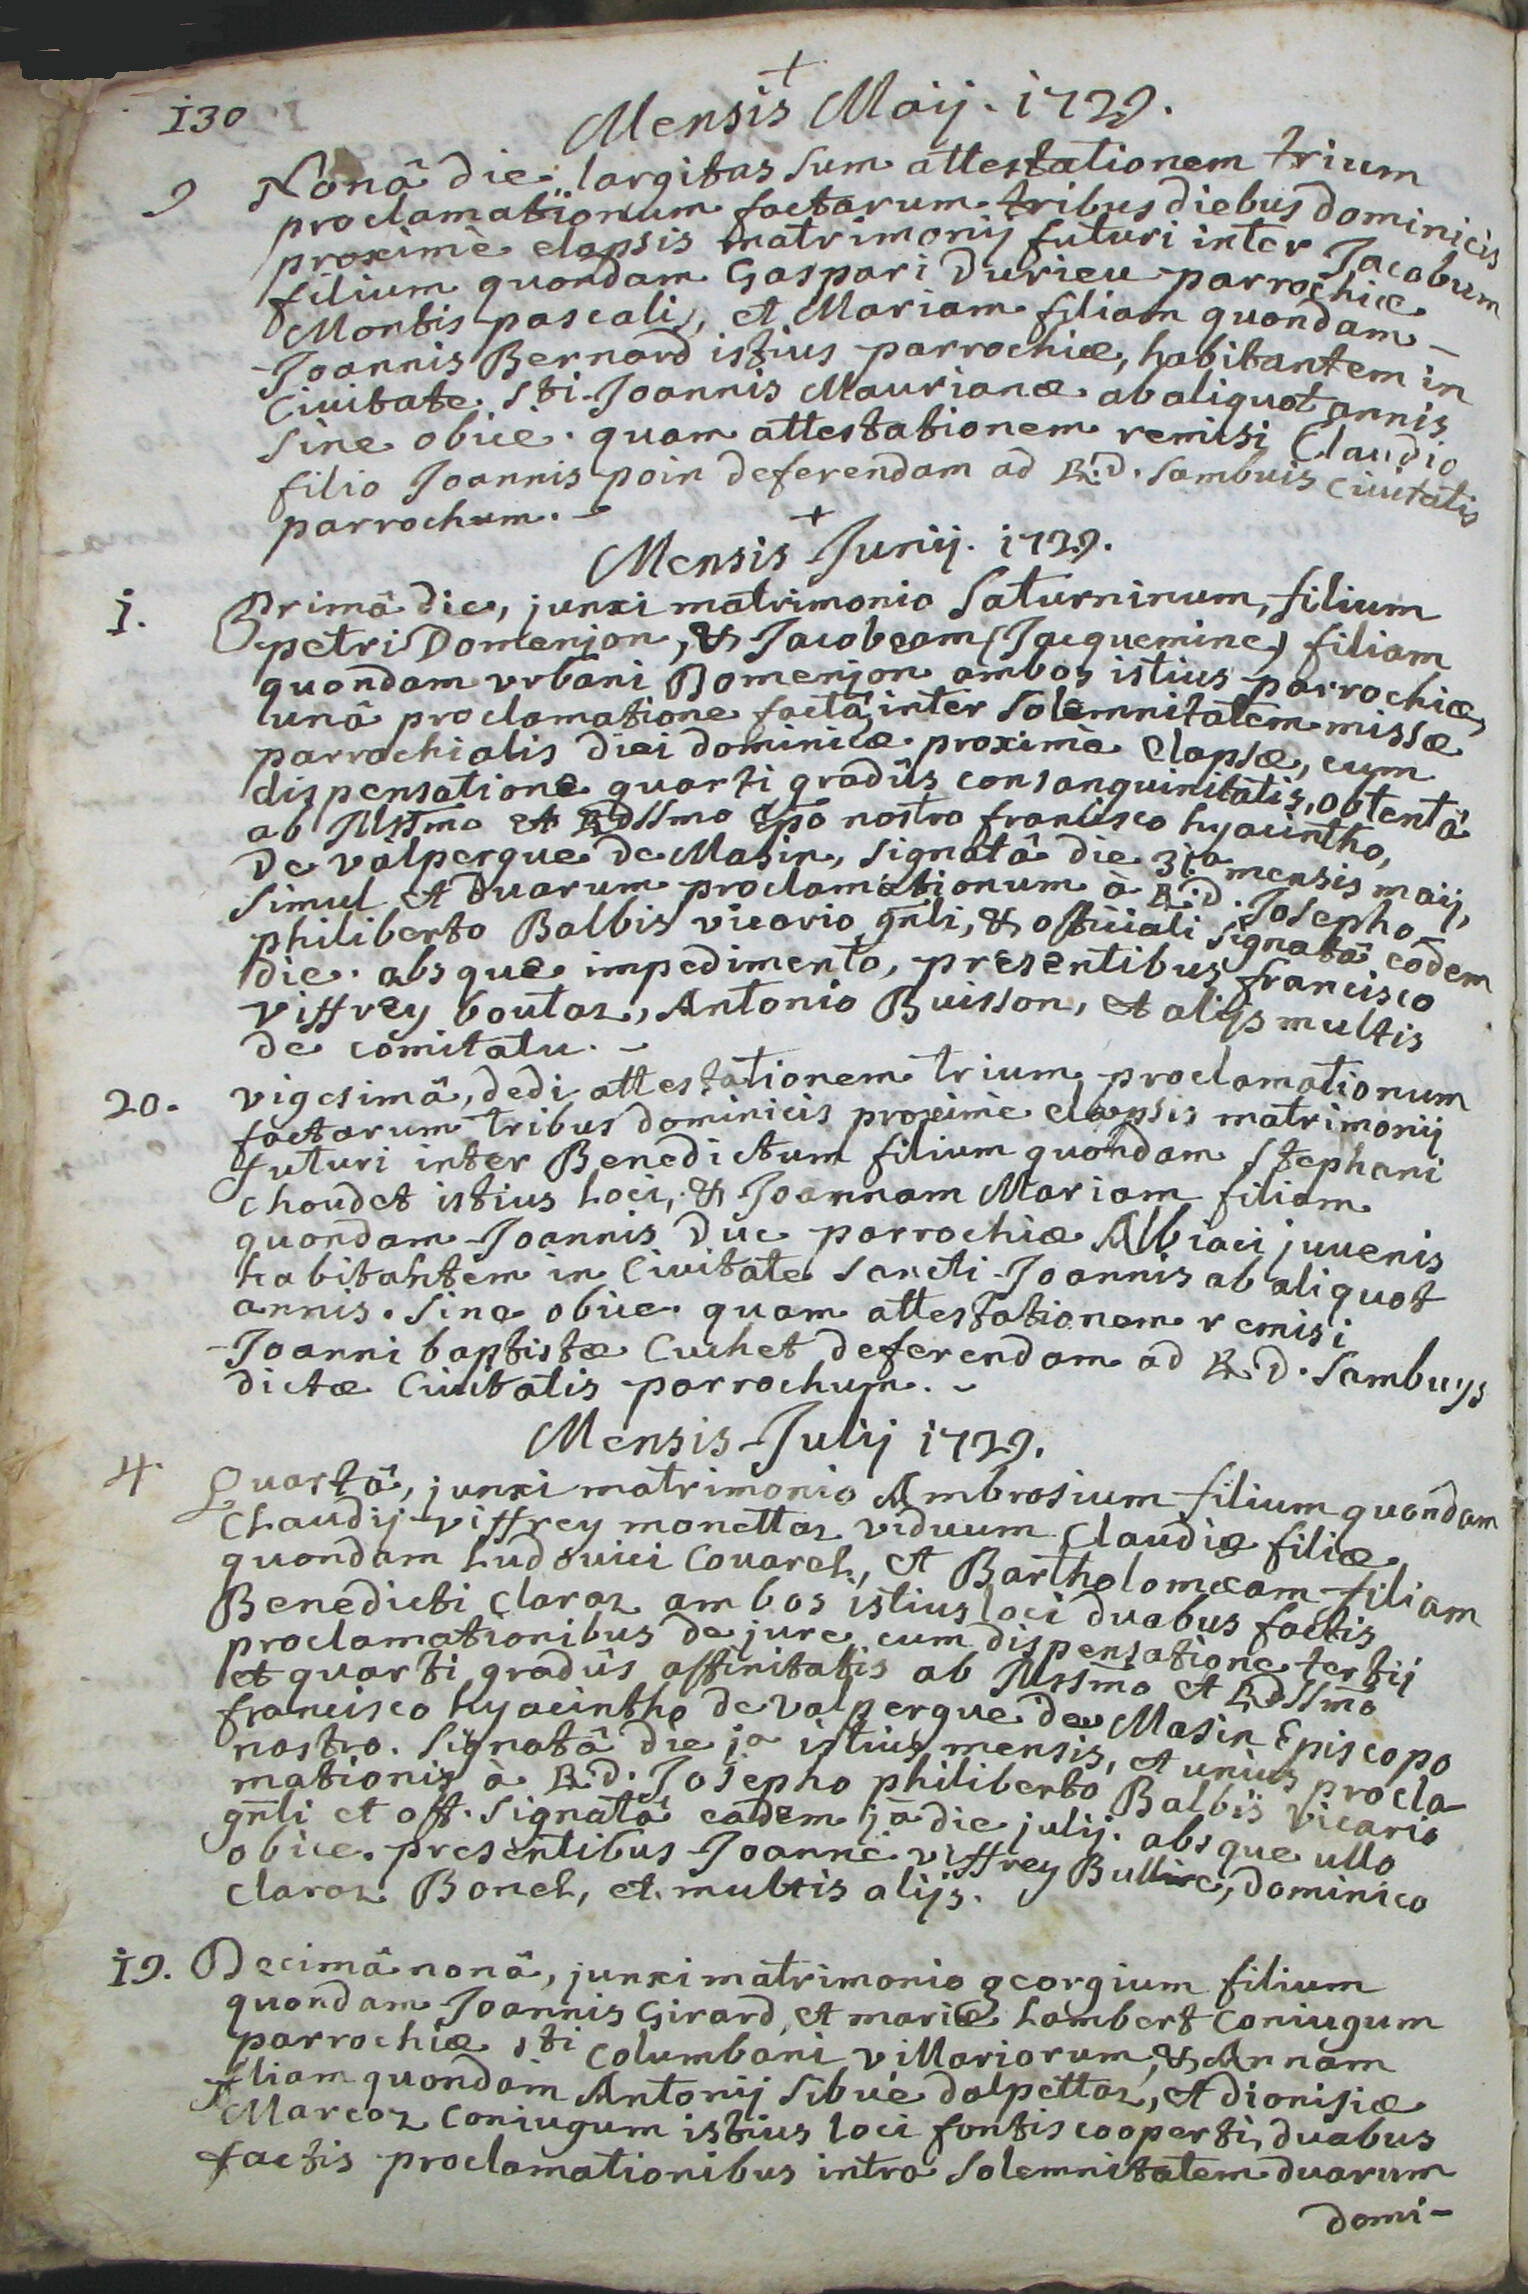 130
+
Mensis Maij. 1729.
9 Nonâ die largitus sum attestationem trium
proclamationum factarum tribus diebus dominicis
proximè elapsis matrimonij futuri inter Jacobum
filium quondam Gaspari Durieu parrochiæ
Montis pascali, et Mariam filiam quondam
Joannis Bernard istius parrochiæ, habitantem in
Civitate sti Joannis Maurianæ ab aliquot annis
sine obice. quam attestationem remisi Claudio
filio Joannis poin deferendam ad R.D. Sambuis Civitatis
parrochum.
+
Mensis Junij. 1729.
1. Primâ die, junxi matrimonio Saturninum, filium
petri Domenjon, & Jacobeam (Jacquemine) filiam
quondam vrbani Domenjon ambos istius parrochiæ,
unâ proclamatione factâ inter solemnitatem missæ
parrochialis diei dominicæ proximè elapsæ, cum
dispensatione quarti gradûs consanguinitatis, obtentâ
ab Illstmo et Rdssmo Epō nostro francisco hyacintho,
De valpergue De Masin, signatâ die 31a mensis maij,
simul et duarum proclamationum à R.D. Josepho
philiberto Balbis vicario gnli, & officiali signatâ eodem
die. absque impedimento, presentibus francisco
viffrey boutaz, Antonio Buisson, et alijs multis
de comitatu.
20. vigesimâ, dedi attestationem trium proclamationum
factarum tribus dominicis proximè elapsis matrimonij
futuri inter Benedictum filium quondam Stephani
choudet istius loci, & Joannam Mariam filiam
quondam Joannis Duc parrochiæ Albiaci juvenis
habitantem in Civitate sancti Joannis ab aliquot
annis. sine obice. quam attestationem remisi
Joanni baptistæ Cuchet deferendam ad R.D. Sambuys
dictæ Civitatis parrochum.
Mensis Julij 1729.
4 Quartâ, junxi matrimonio Ambrosium filium quondam
Claudij viffrey monettaz viduum Claudiæ filiæ
quondam Ludovici Covarel, et Bartholomeam filiam
Benedicti Claraz ambos istius loci duabus factis
proclamationibus de jure cum dispensatione tertij
et quarti gradûs affinitatis ab Illssmo et Rdssmo
francisco hyacintho de valpergue de Masin Episcopo
nostro. Signatâ die 1a istius mensis, et unius procla-
mationis à R.D. Josepho philiberto Balbis vicario
gnli et off. signatâ eadem 1a die julij. absque ullo
obice. presentibus Joanne viffrey Bulline, dominico
Claraz Bonel, et multis alijs.
19. Decimâ nonâ, junxi matrimonio georgium filium
quondam Joannis Girard, et mariæ Lambert Coniugum
parrochiæ sti Columbani villariorum, & Annam
filiam quondam Antonij Sibué dalpettaz, et dionisiæ
Marcoz Coniugum istius loci fontis cooperti, duabus
factis proclamationibus intra solemnitatem duarum
domi-